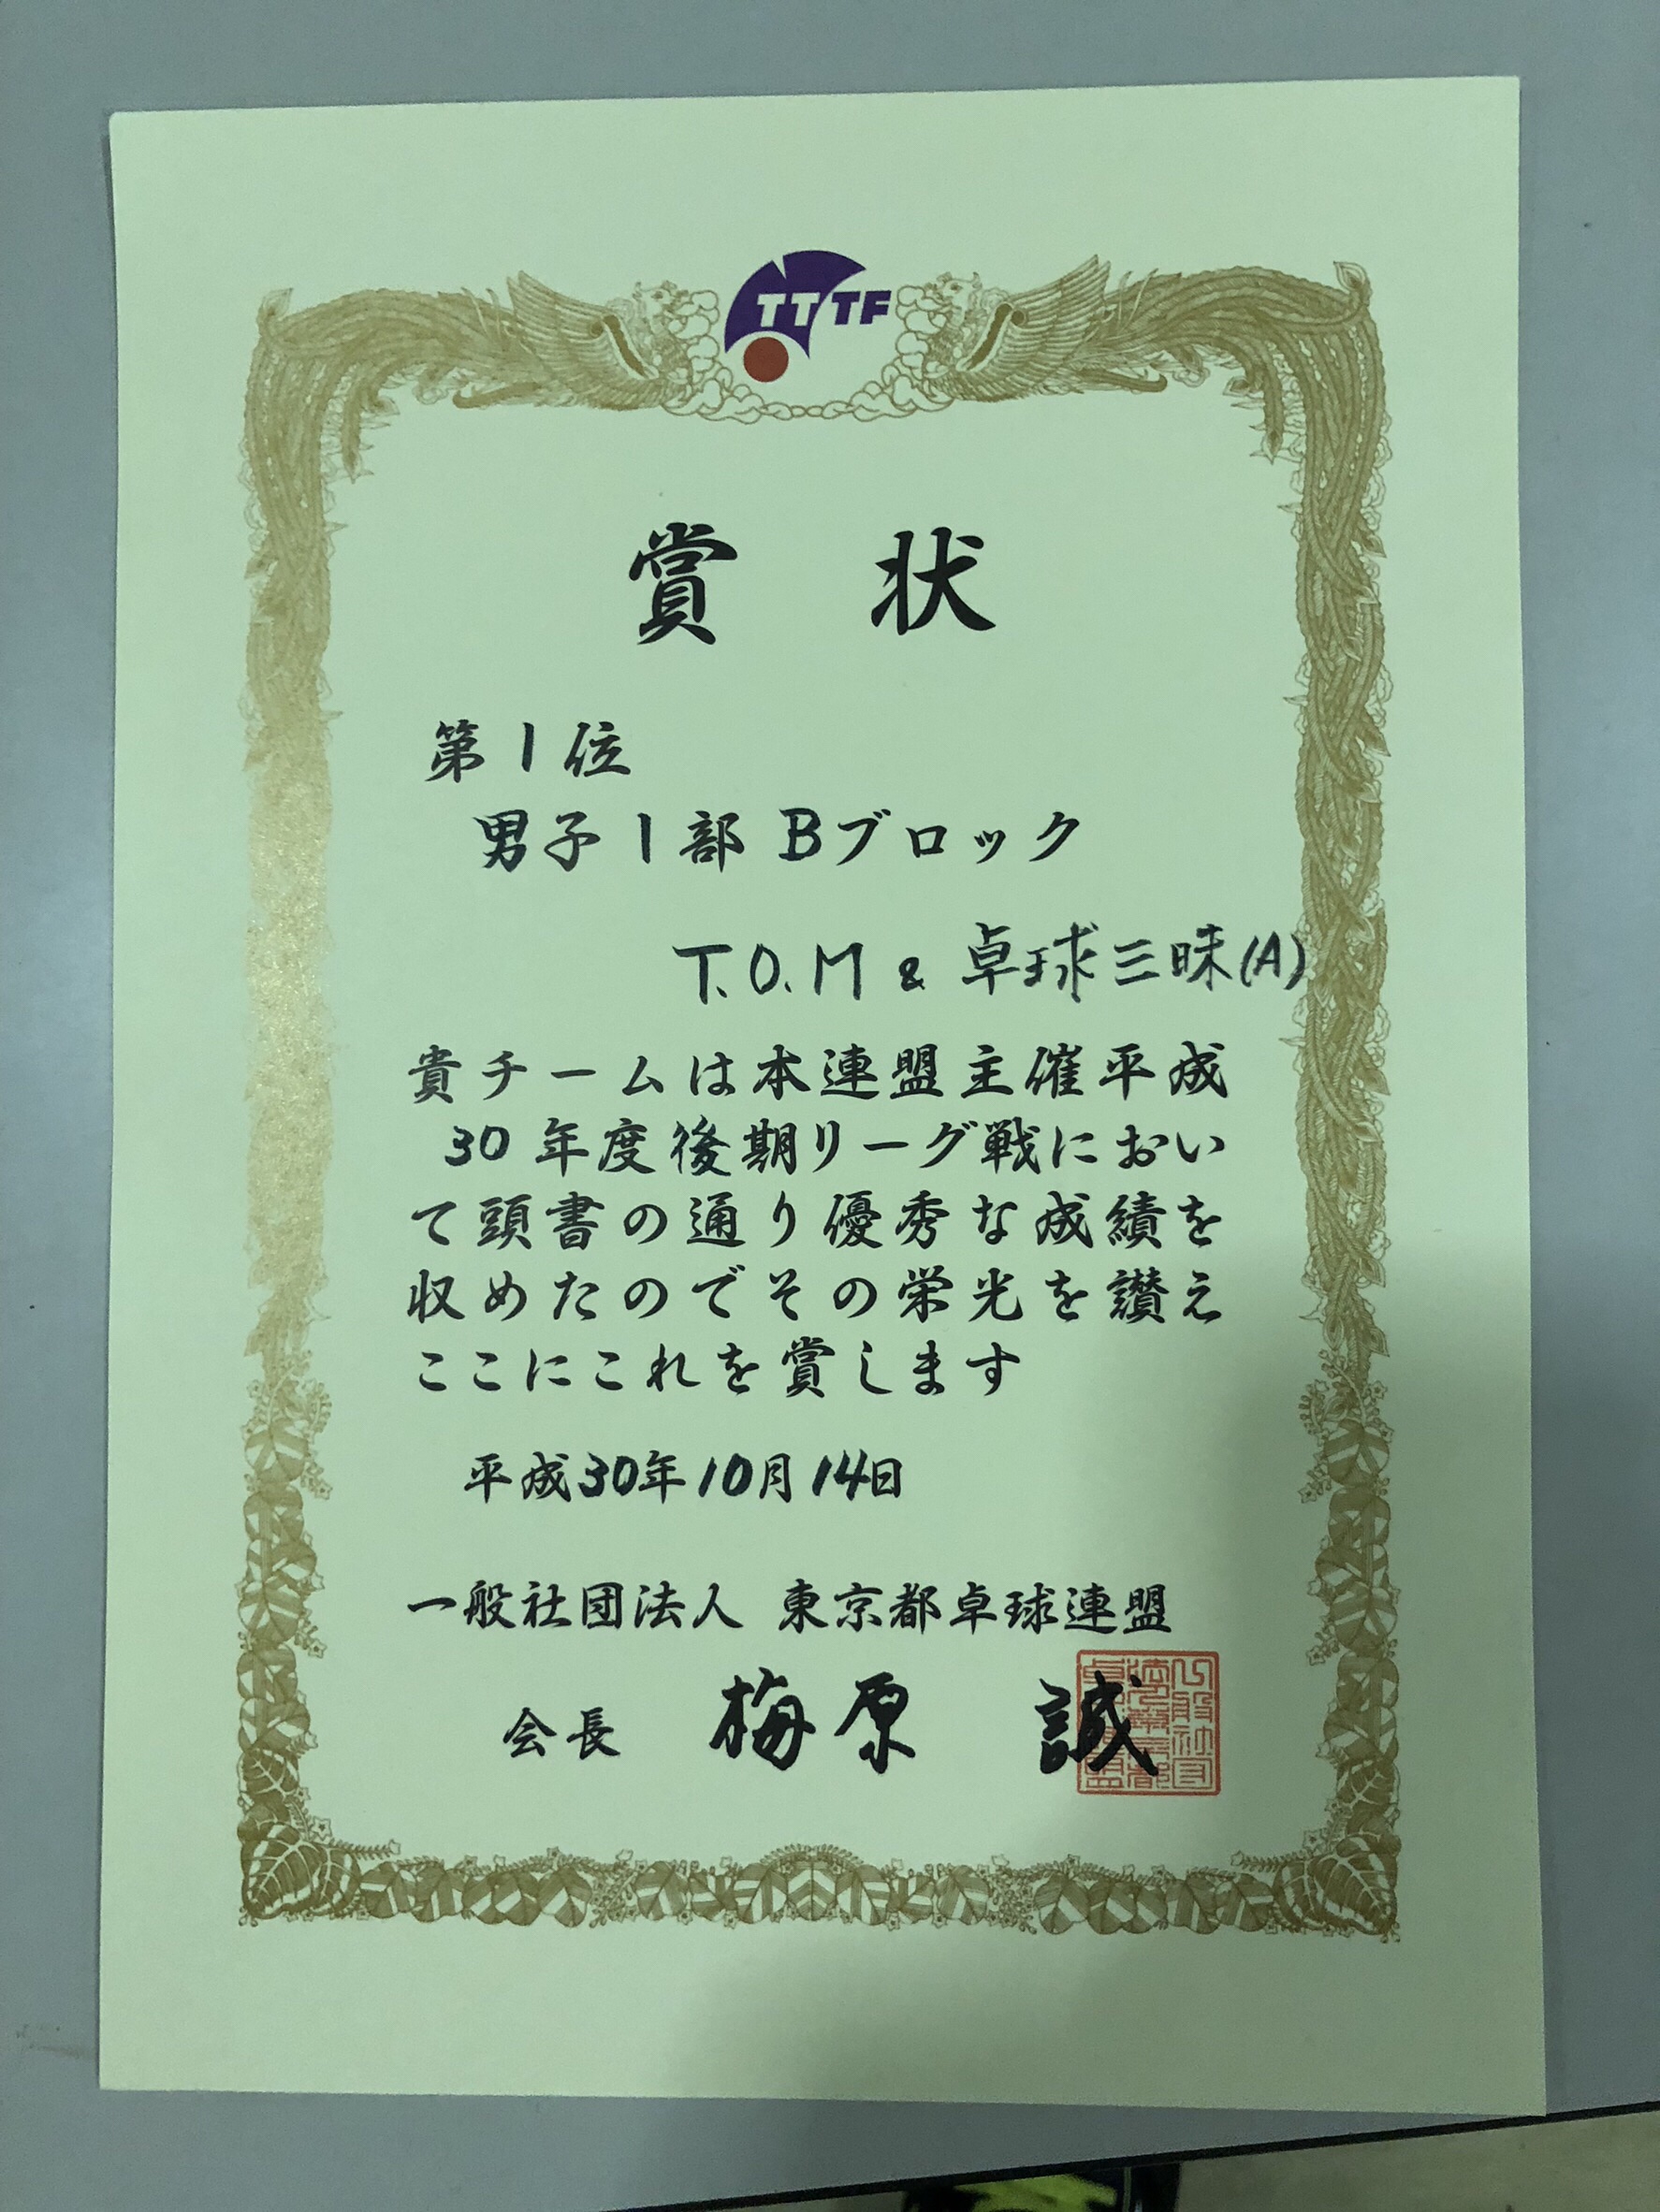 TTTF
賞 状
第1位
男子1部 Bブロック
T.O.M & 卓球三昧(A)
貴チームは本連盟主催平成
30年度後期リーグ戦におい
て頭書の通り優秀な成績を
収めたのでその栄光を讃え
ここにこれを賞します
平成30年10月14日
一般社団法人 東京都卓球連盟
会長 梅原 誠